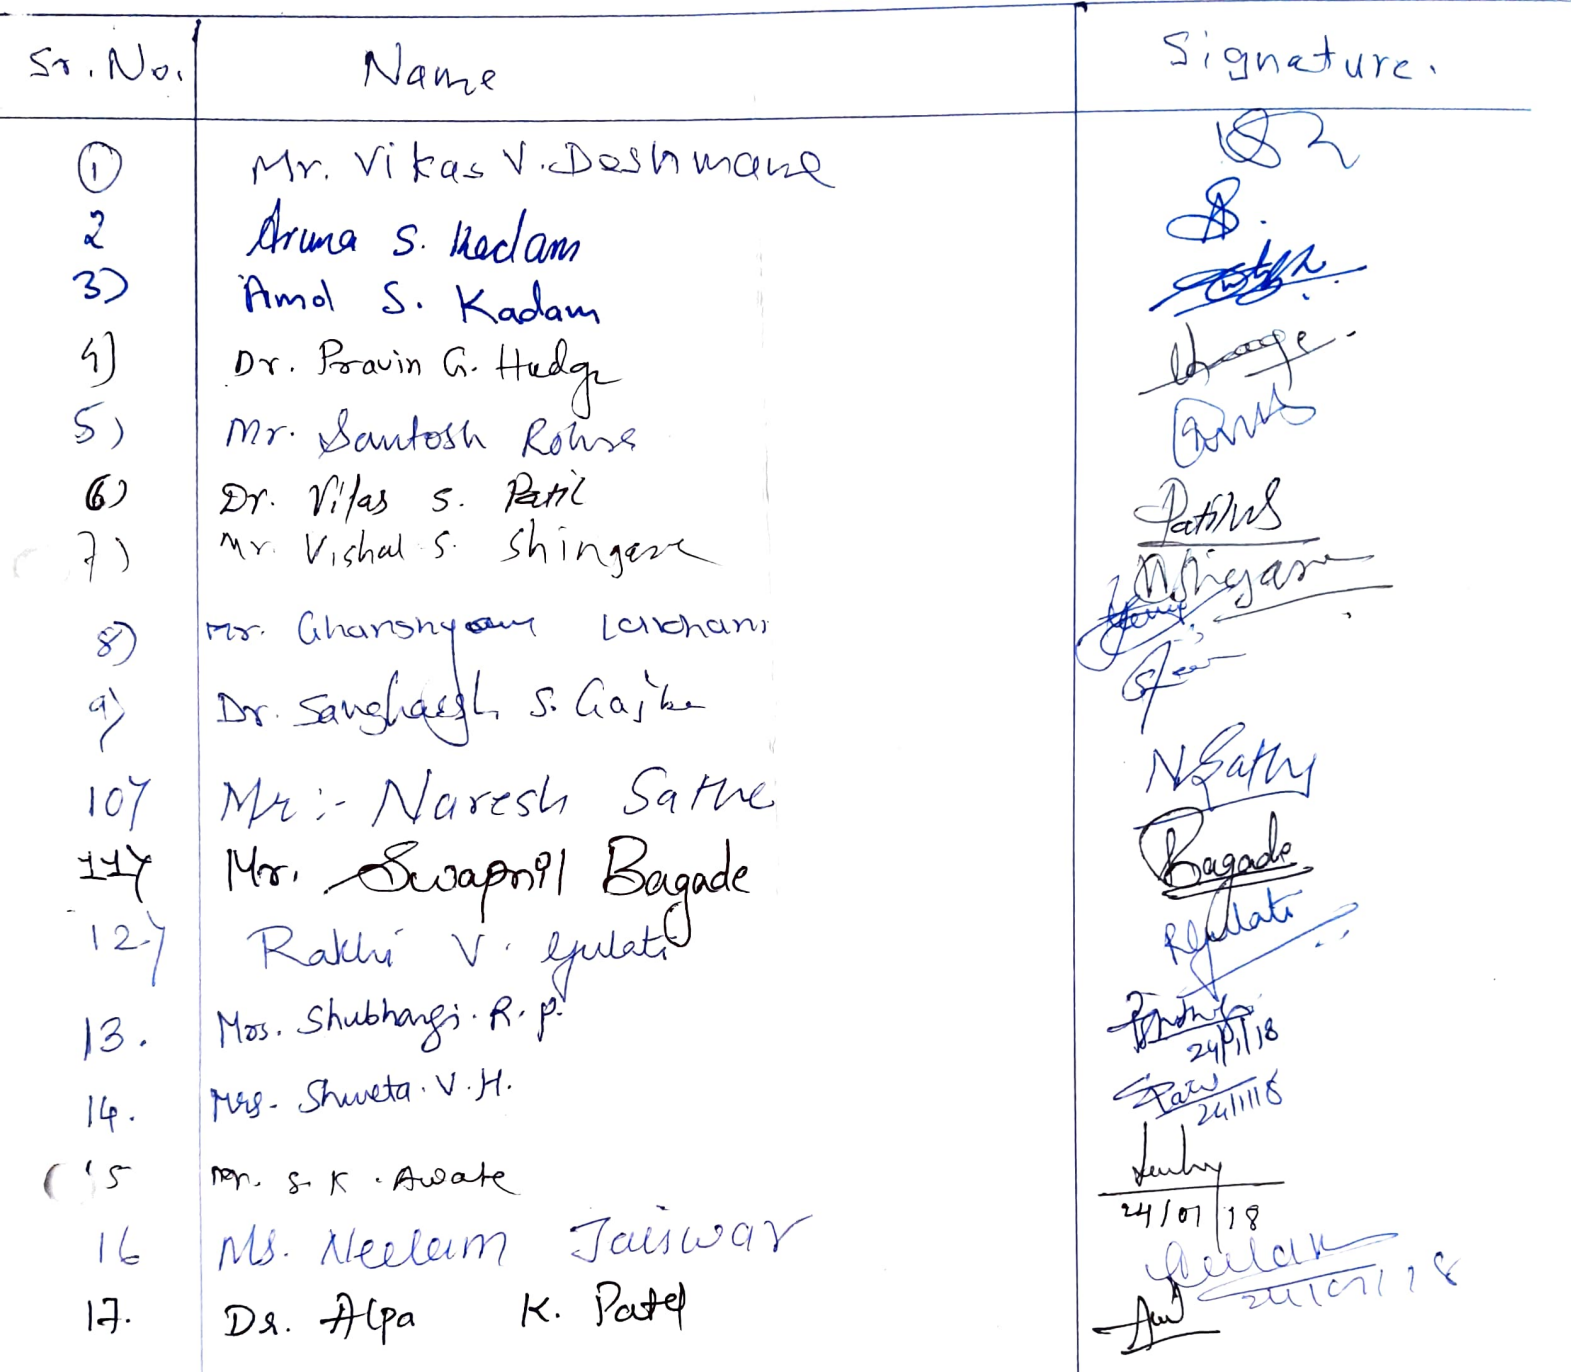 Sr. No. Name Signature.
1 Mr. Vikas V. Deshmane
2 Aruna S. Kadam
3) Amol S. Kadam
4) Dr. Pravin G. Hudge
5) Mr. Santosh
6) Dr. Vilas S. Patil PatilVS
7) Mr. Vishal S. Shingare VShingare
8) Mr. Ghanshyam Lakhani
9) Dr. S. Gajbe
10) Mr:- Naresh Sathe NSathe
11) Mr. Swapnil Bagade Bagade
12.) Rakhi V. Gulati RGulati
13. Mrs. Shubhangi. R. P.
24/1/18
14. Mrs. Shweta. V. H.
24/1/18
15 Mr. S. K. Awate
24/01/18
16 Ms. Neelam Jaiswar
24/01/18
17. Dr. Alpa K. Patel